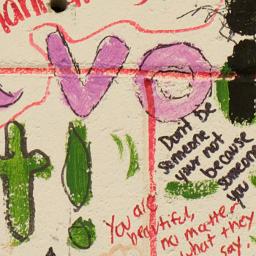 vo
t!
Don't be
someone
your not
because
someone
you
You are
beautiful,
no matter
what they
say.